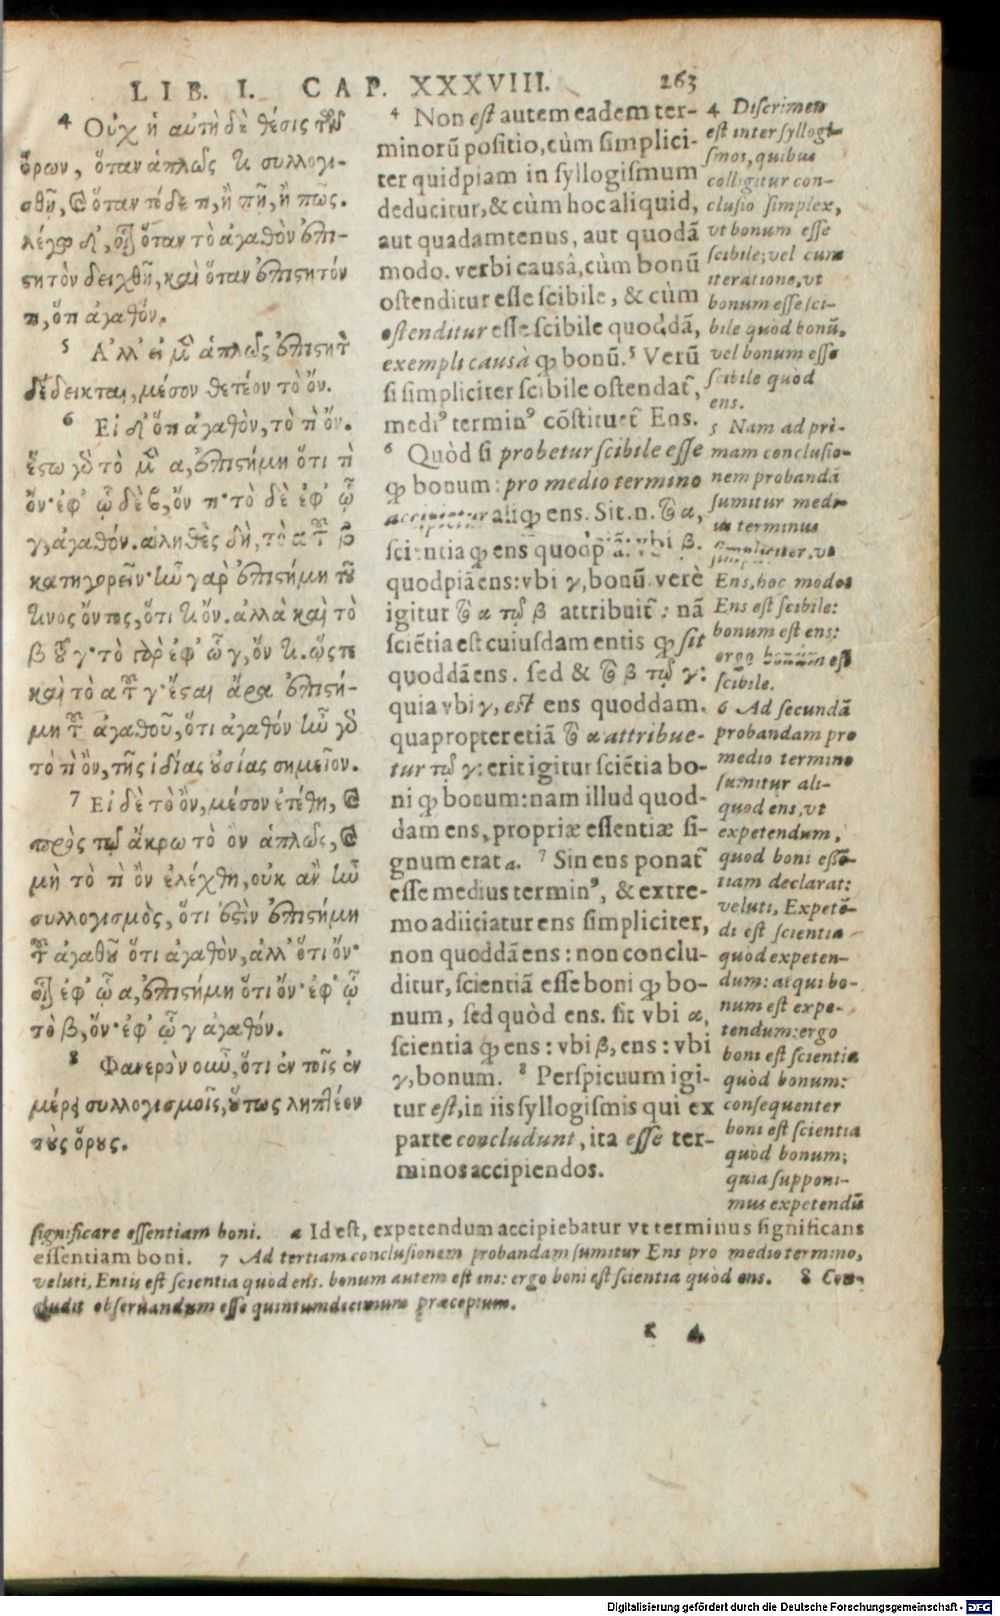 LIB. I. CAP. XXXVIII. 263
4 Οὐχ ἡ αὐτὴ δὲ θέσις τῶν
ὅρων, ὅταν ἁπλῶς τι συλλογι-
σθῇ, καὶ ὅταν τόδε τι, ἢ πῇ, ἢ πῶς.
λέγω δ', οἷον ὅταν τὸ ἀγαθὸν ἐπι-
στητὸν δειχθῇ, καὶ ὅταν ἐπιστητόν
τι, ὅτι ἀγαθόν.
5 Ἀλλ' εἰ μὲν ἁπλῶς ἐπιστητὸν
δέδεικται, μέσον θετέον τὸ ὄν.
6 Εἰ δ' ὅτι ἀγαθὸν, τὸ τὶ ὄν.
ἔστω γὰρ τὸ μὲν α, ἐπιστήμη ὅτι τὶ
ὄν· ἐφ' ᾧ δὲ β, ὄν τι· τὸ δὲ ἐφ' ᾧ
γ, ἀγαθόν. ἀληθὲς δὴ, τὸ α τοῦ β
κατηγορεῖν· ἦν γὰρ ἐπιστήμη τοῦ
τινὸς ὄντος, ὅτι τὶ ὄν. ἀλλὰ καὶ τὸ
β τοῦ γ· τὸ γὰρ ἐφ' ᾧ γ, ὄν τι. ὥστε
καὶ τὸ α τοῦ γ· ἔσται ἄρα ἐπιστή-
μη τοῦ ἀγαθοῦ, ὅτι ἀγαθόν ἦν γὰρ
τὸ τὶ ὄν, τῆς ἰδίας οὐσίας σημεῖον.
7 Εἰ δὲ τὸ ὄν, μέσον ἐτέθη, καὶ
πρὸς τῷ ἄκρῳ τὸ ὂν ἁπλῶς, καὶ
μὴ τὸ τὶ ὂν ἐλέχθη, οὐκ ἂν ἦν
συλλογισμὸς, ὅτι ἐστὶν ἐπιστήμη
τοῦ ἀγαθοῦ ὅτι ἀγαθὸν, ἀλλ' ὅτι ὄν·
οἷον ἐφ' ᾧ α, ἐπιστήμη ὅτι ὄν· ἐφ' ᾧ
τὸ β, ὄν· ἐφ' ᾧ γ ἀγαθόν.
8 Φανερὸν οὖν, ὅτι ἐν τοῖς ἐν
μέρει συλλογισμοῖς, οὕτως ληπτέον
τοὺς ὅρους.
4 Non est autem eadem ter-
minorũ positio, cùm simplici-
ter quidpiam in syllogismum
deducitur, & cùm hoc aliquid,
aut quadamtenus, aut quodã
modo. verbi causâ, cùm bonũ
ostenditur esse scibile, & cùm
ostenditur esse scibile quoddã,
exempli causâ qꝫ bonũ. 5 Verũ
si simpliciter scibile ostendat᷑,
mediꝰ terminꝰ cõstituet᷑ Ens.
6 Quòd si probetur scibile esse
qꝫ bonum: pro medio termino
accipietur aliqꝫ ens. Sit.n. τὸ α,
scientia qꝫ ens quodpiã: vbi β.
quodpiã ens: vbi γ, bonũ. verè
igitur τὸ α τῷ β attribuit᷑: nã
sciẽtia est cuiusdam entis qꝫ sit
quoddã ens. sed & τὸ β τῷ γ:
quia vbi γ, est ens quoddam.
quapropter etiã τὸ α attribue-
tur τῷ γ: erit igitur sciẽtia bo-
ni qꝫ bonum: nam illud quod-
dam ens, propriæ essentiæ si-
gnum erat a. 7 Sin ens ponat᷑
esse medius terminꝰ, & extre-
mo adiiciatur ens simpliciter,
non quoddã ens: non conclu-
ditur, scientiã esse boni qꝫ bo-
num, sed quòd ens. sit vbi α,
scientia qꝫ ens: vbi β, ens: vbi
γ, bonum. 8 Perspicuum igi-
tur est, in iis syllogismis qui ex
parte concludunt, ita esse ter-
minos accipiendos.
4 Discrimen
est inter syllogi-
smos, quibus
colligitur con-
clusio simplex,
vt bonum esse
scibile; vel cum
iteratione, vt
bonum esse sci-
bile quod bonũ,
vel bonum esse
scibile quòd
ens.
5 Nam ad pri-
mam conclusio-
nem probandã
sumitur medi-
us terminus
simpliciter, vt
Ens, hoc modo:
Ens est scibile:
bonum est ens:
ergo bonum est
scibile.
6 Ad secundã
probandam pro
medio termino
sumitur ali-
quod ens, vt
expetendum,
quod boni essẽ-
tiam declarat:
veluti, Expetẽ-
di est scientia
quod expeten-
dum: atqui bo-
num est expe-
tendum: ergo
boni est scientia
quòd bonum:
consequenter
boni est scientia
quòd bonum;
quia supponi-
mus expetendũ
significare essentiam boni. a Id est, expetendum accipiebatur vt terminus significans
essentiam boni. 7 Ad tertiam conclusionem probandam sumitur Ens pro medio termino,
veluti, Entis est scientia quod ens. bonum autem est ens: ergo boni est scientia quòd ens. 8 Con-
cludit obseruandum esse quintumdecimum præceptum.
K 4
Digitalisierung gefördert durch die Deutsche Forschungsgemeinschaft - DFG